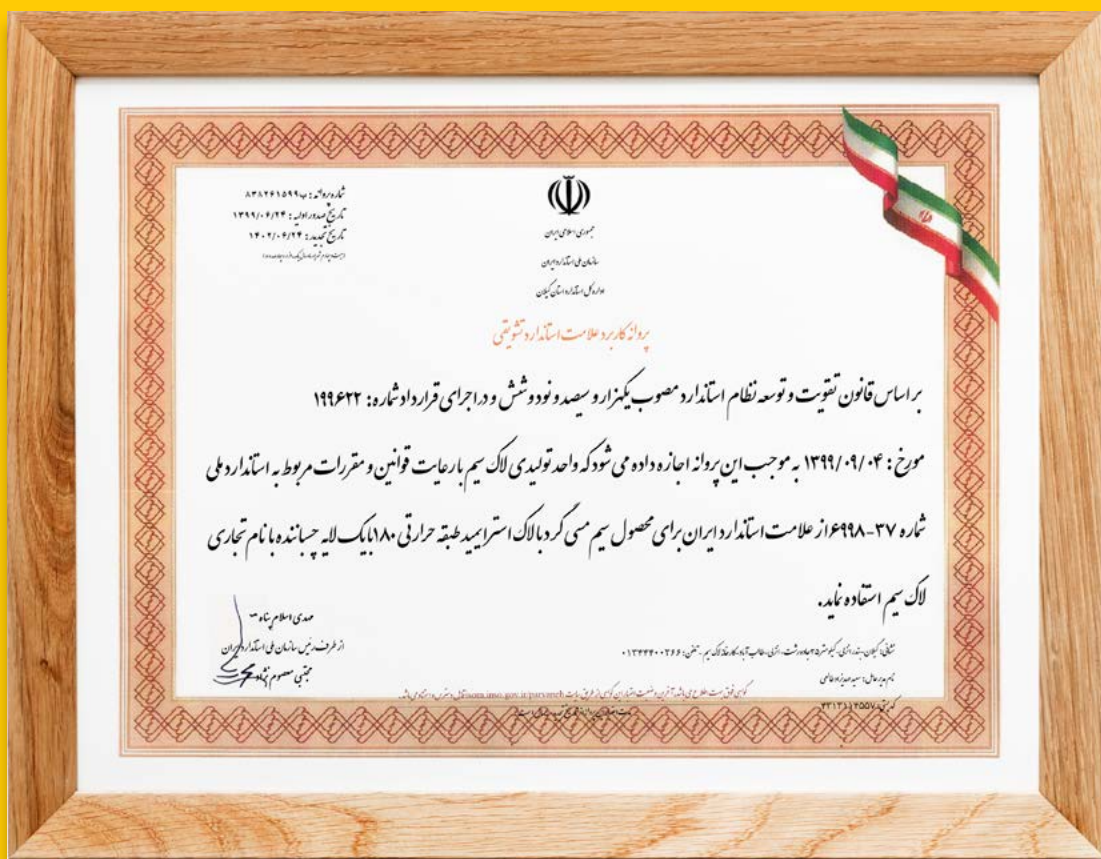 شماره پروانه : ب۸۳۸۲۶۱۵۹۹
تاریخ صدور اولیه : ۱۳۹۹/۰۶/۲۴
تاریخ تجدید : ۱۴۰۲/۰۶/۲۴
جمهوری اسلامی ایران
سازمان ملی استاندارد ایران
اداره کل استاندارد استان گیلان
پروانه کاربرد علامت استاندارد تشویقی
بر اساس قانون تقویت و توسعه نظام استاندارد مصوب یکهزار و سیصد و نود و شش و در اجرای قرارداد شماره : ۱۹۹۶۲۲
مورخ : ۱۳۹۹/۰۹/۰۴ به موجب این پروانه اجازه داده می شود که واحد تولیدی لاک سیم با رعایت قوانین و مقررات مربوط به استاندارد ملی
شماره ۳۷-۶۹۹۸ از علامت استاندارد ایران برای محصول سیم مسی گرد با لاک استرایمید طبقه حرارتی ۱۸۰ با یک لایه چسباننده با نام تجاری
لاک سیم استفاده نماید.
مهدی اسلام پناه
از طرف رئیس سازمان ملی استاندارد ایران
مجتبی معصوم نژاد
نشانی : گیلان - بندر انزلی - کیلومتر ۲۵ جاده رشت - انزلی - طالب آباد - کارخانه لاک سیم - تلفن : ۰۱۳۴۴۴۰۰۲۶۶
نام مدیر عامل :
کد پستی : ۴۳۱۳۱۱۴۵۵۷